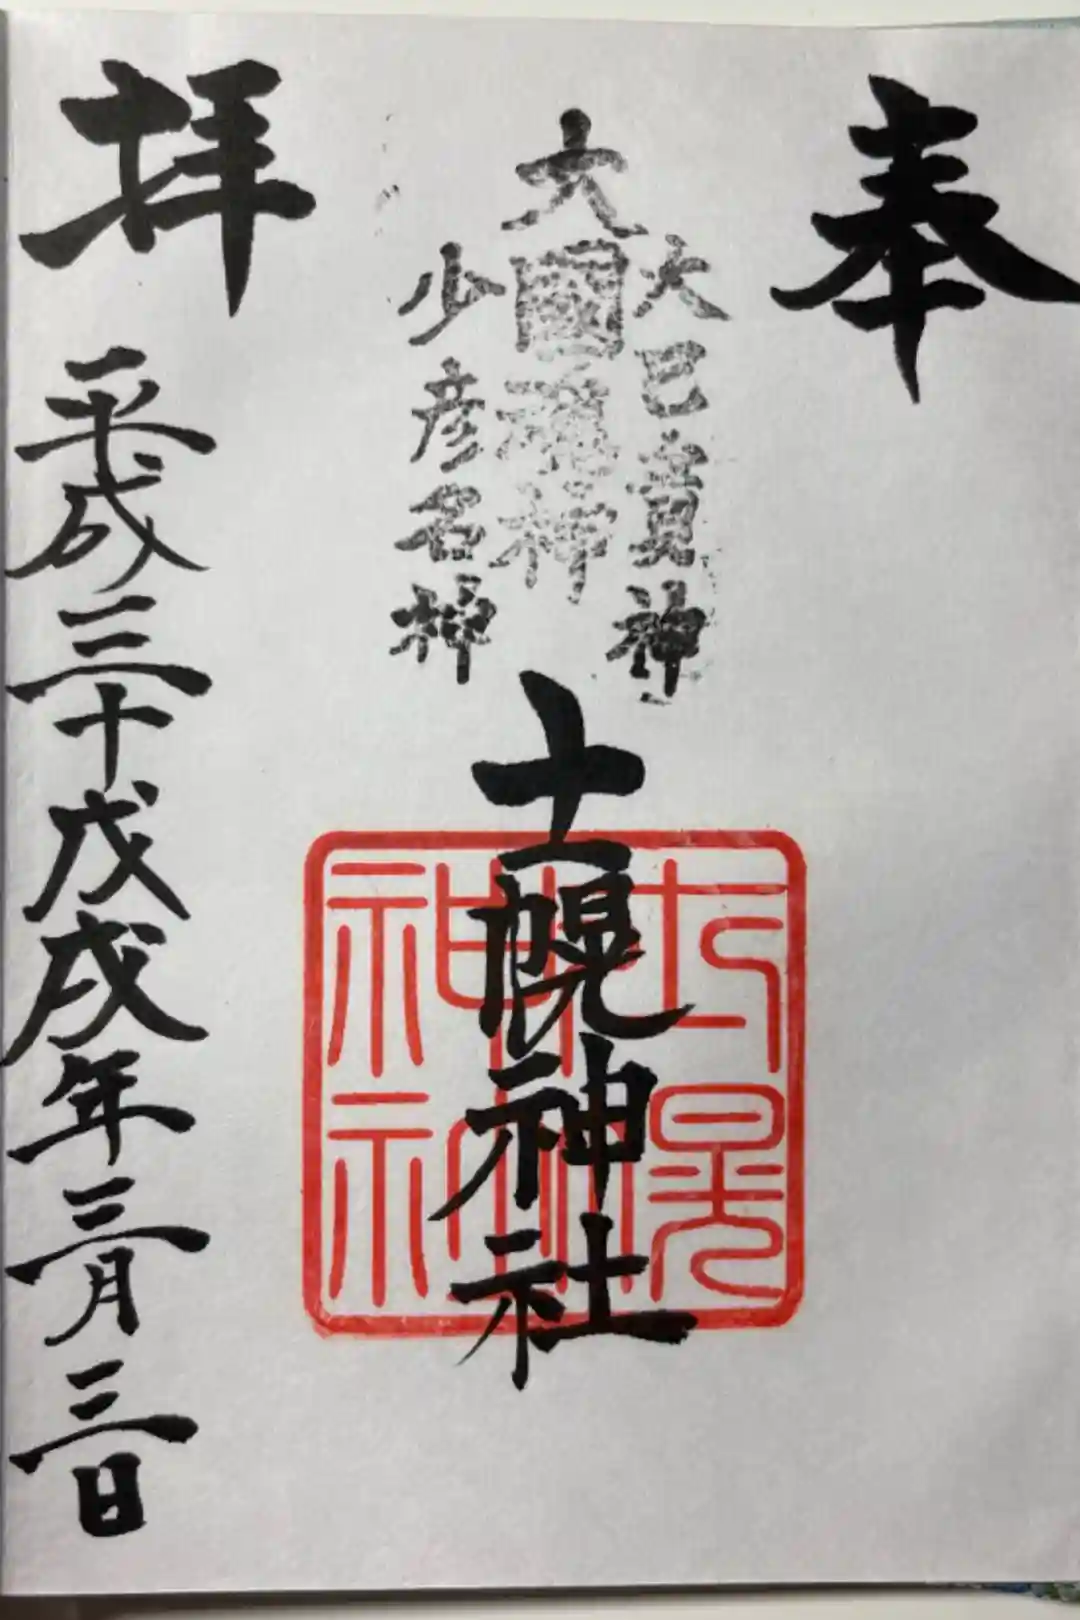 奉
大己貴神
大國魂神
少彦名神
士幌神社
拝
平成三十戊戌年三月三日